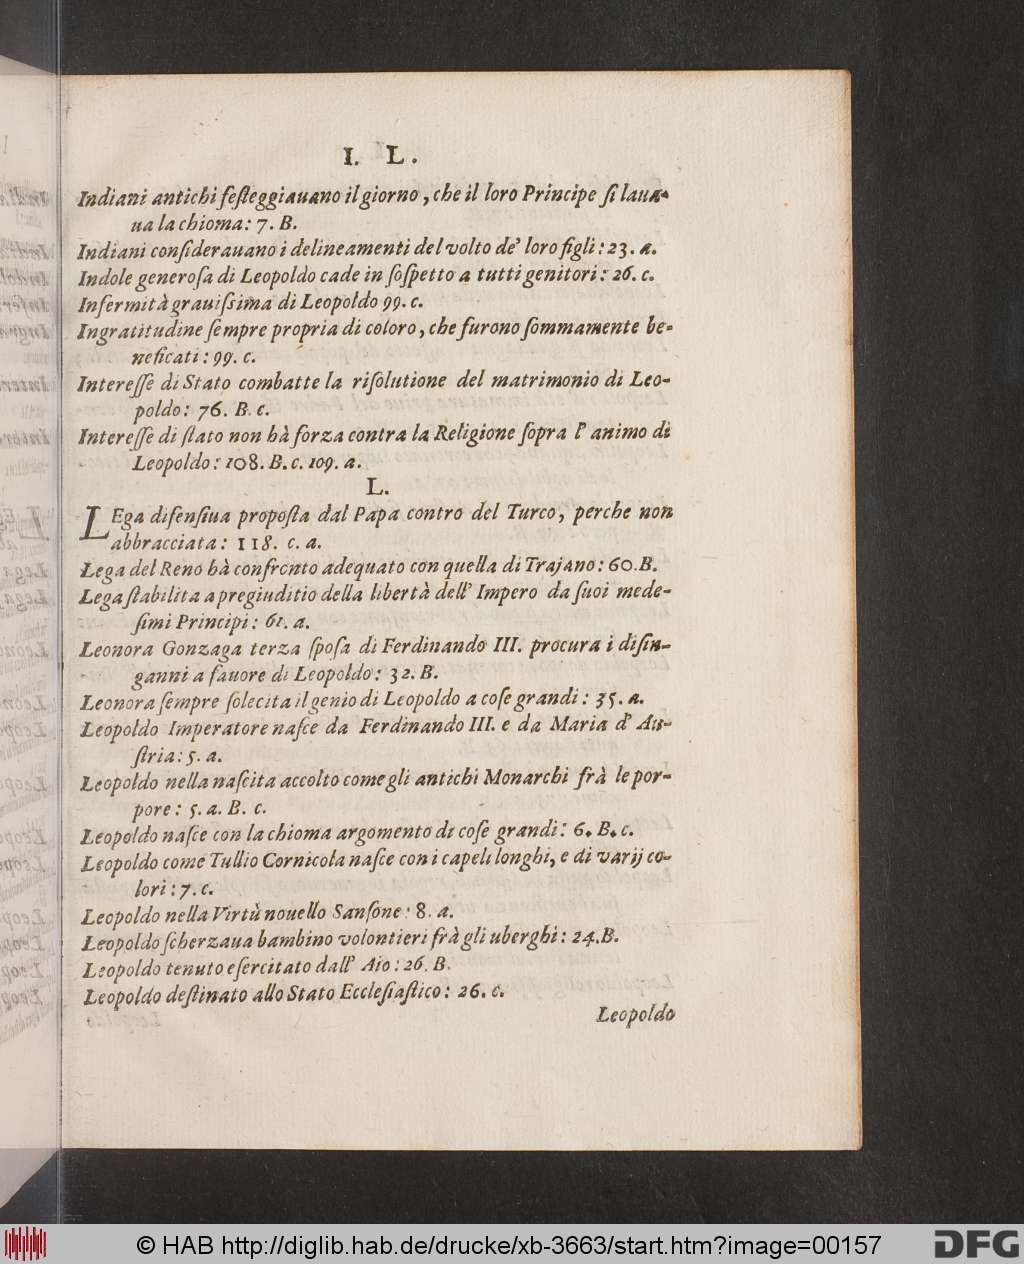 I. L.
Indiani antichi feſteggiauano il giorno, che il loro Principe ſi laua-
ua la chioma: 7. B.
Indiani conſiderauano i delineamenti del volto de' loro figli: 23. a.
Indole generoſa di Leopoldo cade in ſoſpetto a tutti genitori: 26. c.
Infermità grauiſsima di Leopoldo 99. c.
Ingratitudine ſempre propria di coloro, che furono ſommamente be-
neficati: 99. c.
Intereſſe di Stato combatte la riſolutione del matrimonio di Leo-
poldo: 76. B. c.
Intereſſe di ſtato non hà forza contra la Religione ſopra l' animo di
Leopoldo: 108. B. c. 109. a.
L.
LEga difenſiua propoſta dal Papa contro del Turco, perche non
abbracciata: 118. c. a.
Lega del Reno hà confronto adequato con quella di Trajano: 60. B.
Lega ſtabilita a pregiuditio della libertà dell' Impero da ſuoi mede-
ſimi Principi: 61. a.
Leonora Gonzaga terza ſpoſa di Ferdinando III. procura i diſin-
ganni a fauore di Leopoldo: 32. B.
Leonora ſempre ſolecita il genio di Leopoldo a coſe grandi: 35. a.
Leopoldo Imperatore naſce da Ferdinando III. e da Maria d' Au-
ſtria: 5. a.
Leopoldo nella naſcita accolto come gli antichi Monarchi frà le por-
pore: 5. a. B. c.
Leopoldo naſce con la chioma argomento di coſe grandi: 6. B. c.
Leopoldo come Tullio Cornicola naſce con i capeli longhi, e di varij co-
lori: 7. c.
Leopoldo nella Virtù nouello Sanſone: 8. a.
Leopoldo ſcherzaua bambino volontieri frà gli uberghi: 24. B.
Leopoldo tenuto eſercitato dall' Aio: 26. B.
Leopoldo deſtinato allo Stato Eccleſiaſtico: 26. c.
Leopoldo
© HAB http://diglib.hab.de/drucke/xb-3663/start.htm?image=00157
DFG